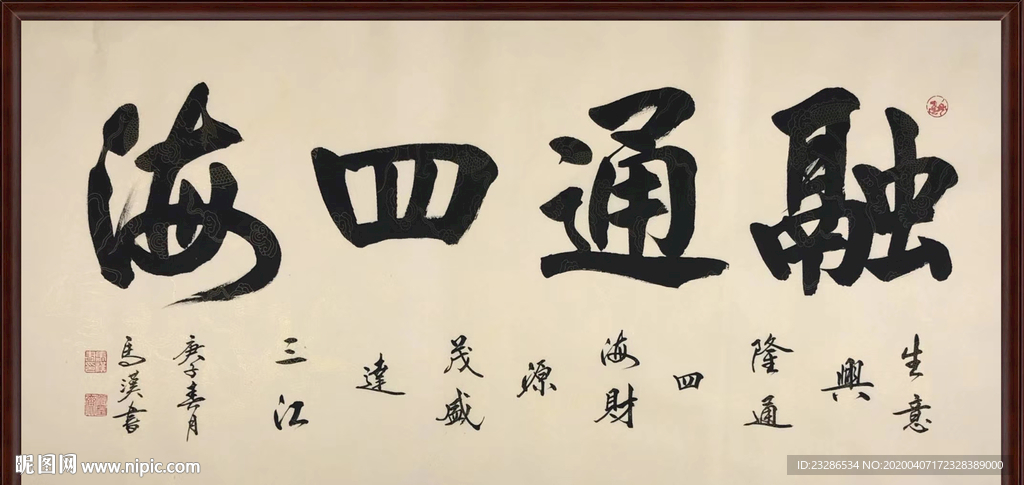 融通四海
生意
興
隆通
四
海財
源
茂盛
達
三江
庚子春月
馬漢書
昵图网 www.nipic.com
ID:23286534 NO:20200407172328389000